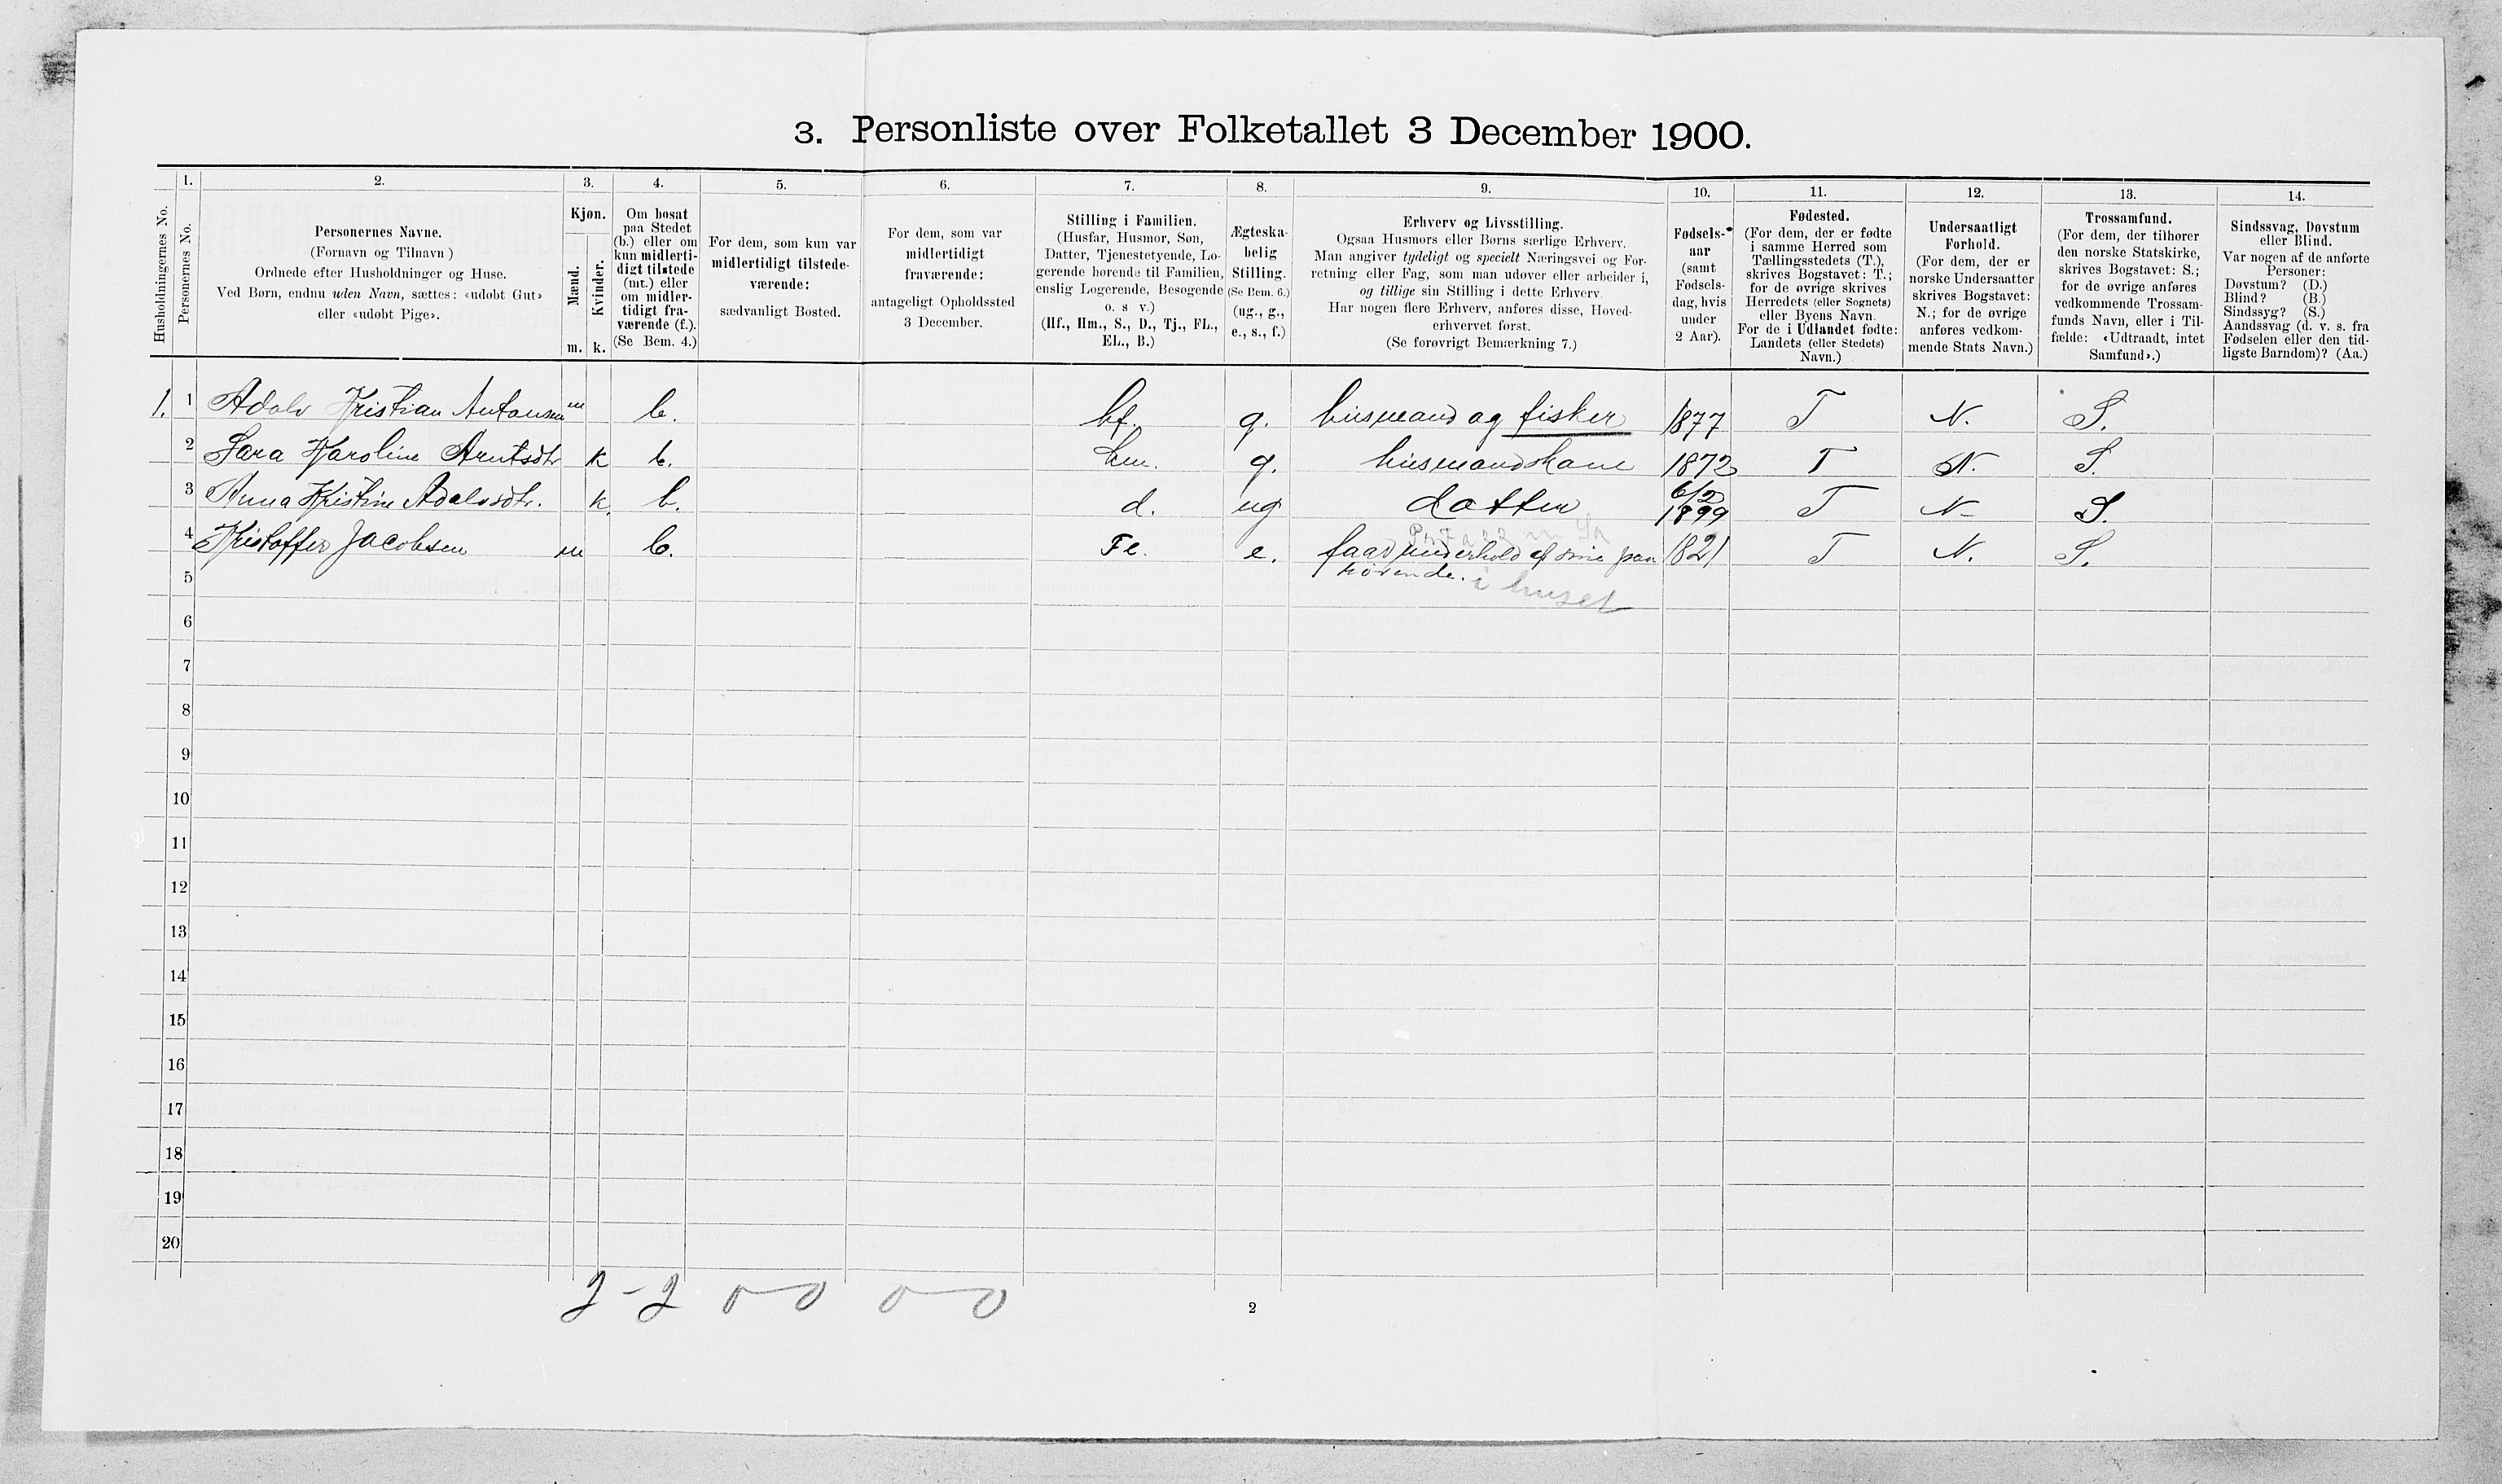 3. Personliste over Folketallet 3 December 1900.
1. 2. 3. 4. 5. 6. 7. 8. 9. 10. 11. 12. 13. 14.
Husholdningernes No.
Personernes No.
Personernes Navne.
(Fornavn og Tilnavn)
Ordnede efter Husholdninger og Huse.
Ved Børn, endnu uden Navn, sættes: «udøbt Gut»
eller «udøbt Pige».
Kjøn.
Mænd.
Kvinder.
m. k.
Om bosat
paa Stedet
(b.) eller om
kun midlerti-
digt tilstede
(mt.) eller
om midler-
tidigt fra-
værende (f.).
(Se Bem. 4.)
For dem, som kun var
midlertidigt tilstede-
værende:
sædvanligt Bosted.
For dem, som var
midlertidigt
fraværende:
antageligt Opholdssted
3 December.
Stilling i Familien.
(Husfar, Husmor, Søn,
Datter, Tjenestetyende, Lo-
gerende hørende til Familien,
enslig Logerende, Besøgende
o. s. v.)
(Hf., Hm., S., D., Tj., FL.,
EL., B.)
Ægteska-
belig
Stilling.
(Se Bem. 6.)
(ug., g.,
e., s., f.)
Erhverv og Livsstilling.
Ogsaa Husmors eller Børns særlige Erhverv.
Man angiver tydeligt og specielt Næringsvei og For-
retning eller Fag, som man udøver eller arbeider i,
og tillige sin Stilling i dette Erhverv.
Har nogen flere Erhverv, anføres disse, Hoved-
erhvervet først.
(Se forøvrigt Bemærkning 7.)
Fødsels-
aar
(samt
Fødsels-
dag, hvis
under
2 Aar).
Fødested.
(For dem, der er fødte
i samme Herred som
Tællingsstedets (T.),
skrives Bogstavet: T.;
for de øvrige skrives
Herredets (eller Sognets)
eller Byens Navn.
For de i Udlandet fødte:
Landets (eller Stedets)
Navn.)
Undersaatligt
Forhold.
(For dem, der er
norske Undersaatter
skrives Bogstavet:
N.; for de øvrige
anføres vedkom-
mende Stats Navn.)
Trossamfund.
(For dem, der tilhører
den norske Statskirke,
skrives Bogstavet: S.;
for de øvrige anføres
vedkommende Trossam-
funds Navn, eller i Til-
fælde: «Udtraadt, intet
Samfund».)
Sindssvag, Døvstum
eller Blind.
Var nogen af de anførte
Personer:
Døvstum? (D.)
Blind? (B.)
Sindssyg? (S.)
Aandssvag (d. v. s. fra
Fødselen eller den tid-
ligste Barndom)? (Aa.)
1. 1 Adolv Kristian Antonsen m b. hf. g. husmand og fisker 1877 T N. S.
2 Sara Karoline Arntsdtr k b. hm. g. husmandskone 1872 T N. S.
3 Anna Kristine Adolvsdtr. k. b. d. ug datter 6/2 1899 T N S.
4 Kristoffer Jacobsen m b. Fl. e. faar underhold af sine paa 1821 T N. S.
5 rørende. i huset
6
7
8
9
10
11
12
13
14
15
16
17
18
19
20
2-2 0-0 0-0
2